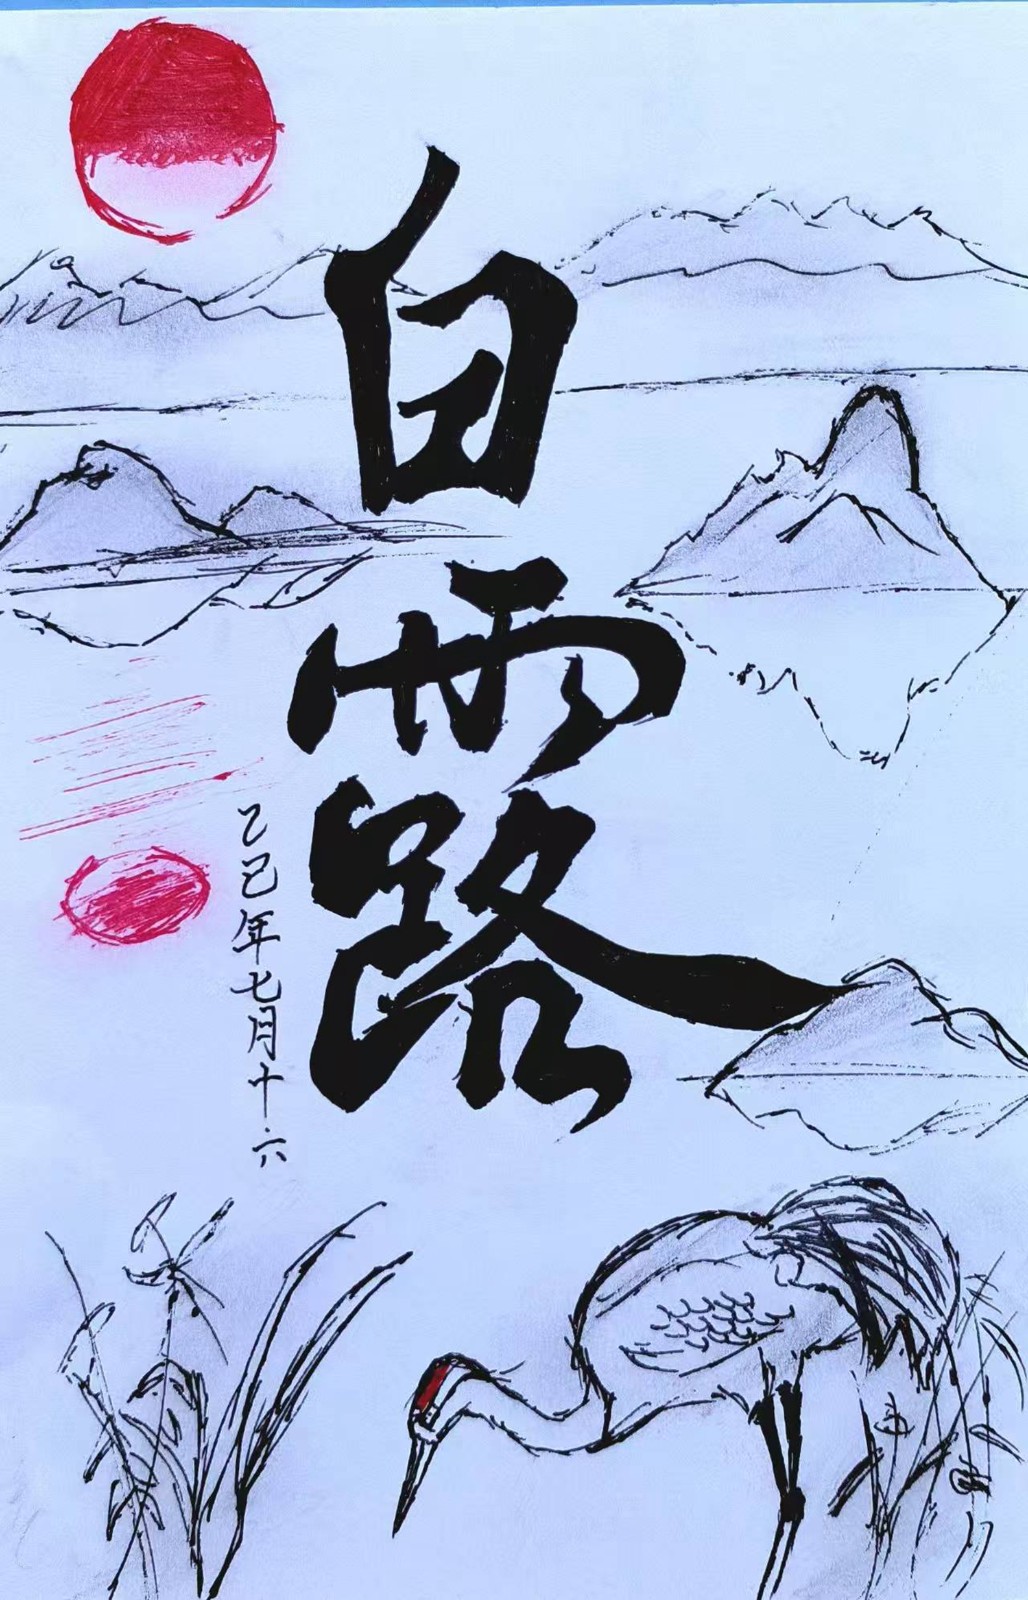 白露
乙巳年七月十六